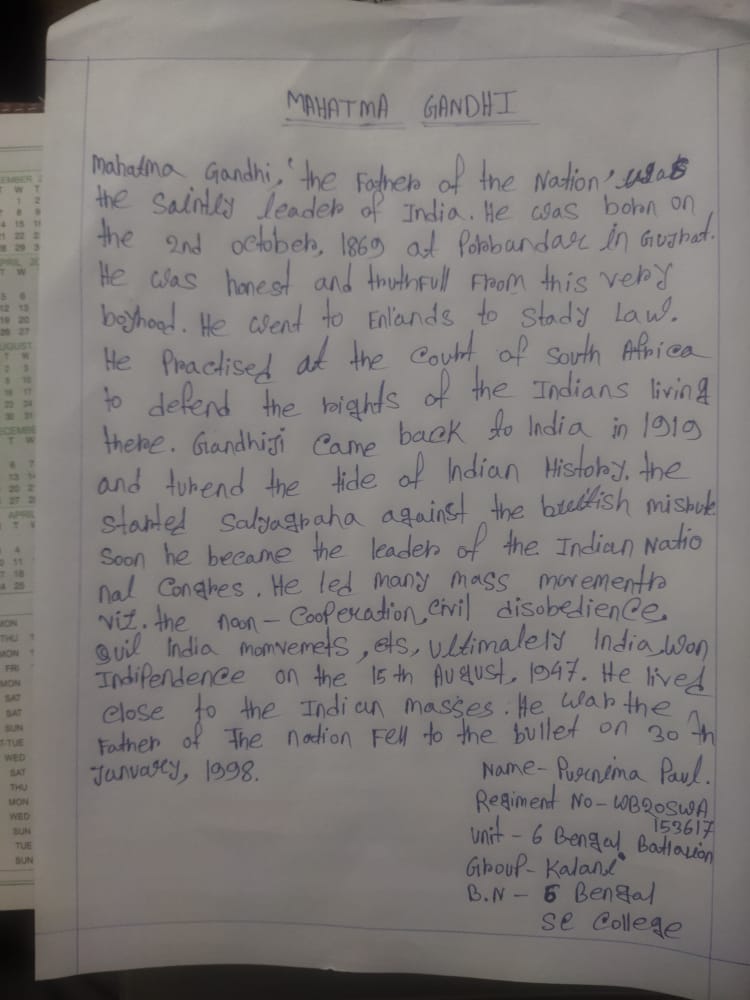 MAHATMA GANDHI
Mahatma Gandhi, 'the Father of the Nation' was
the Saintly leader of India. He was born on
the 2nd october, 1869 at Porbandar in Gujrat.
He was honest and truthfull From this very
boyhood. He went to Enlands to Stady Law.
He Practised at the Court of South Africa
to defend the rights of the Indians living
there. Gandhiji Came back to India in 1919
and turend the tide of Indian History. the
started Satyagraha against the british misruk
Soon he became the leader of the Indian Natio
nal Congres. He led many mass movements
viz. the noon - Cooperation, civil disobedience,
quil India momvemets, ets, ultimately India won
Indipendence on the 15 th August, 1947. He lived
close to the Indian masses. He war the
Father of The nation Fell to the bullet on 30 th
January, 1998.
Name - Purnima Paul.
Regiment No - WB20SWA
153617
Unit - 6 Bengal Battalion
Group - Kalani
B.N - 6 Bengal
SC College